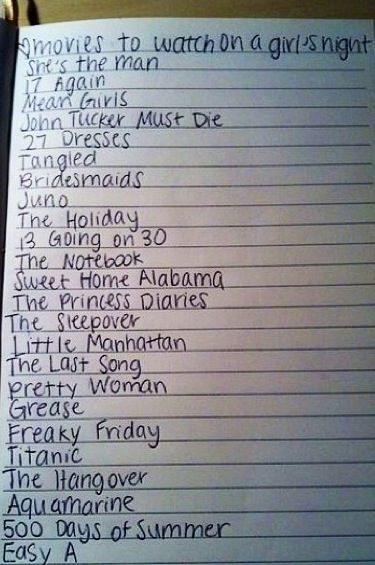 movies to watch on a girl's night
She's the man
17 Again
Mean Girls
John Tucker Must Die
27 Dresses
Tangled
Bridesmaids
Juno
The Holiday
13 Going on 30
The Notebook
Sweet Home Alabama
The Princess Diaries
The Sleepover
Little Manhattan
The Last Song
Pretty Woman
Grease
Freaky Friday
Titanic
The Hangover
Aquamarine
500 Days of Summer
Easy A